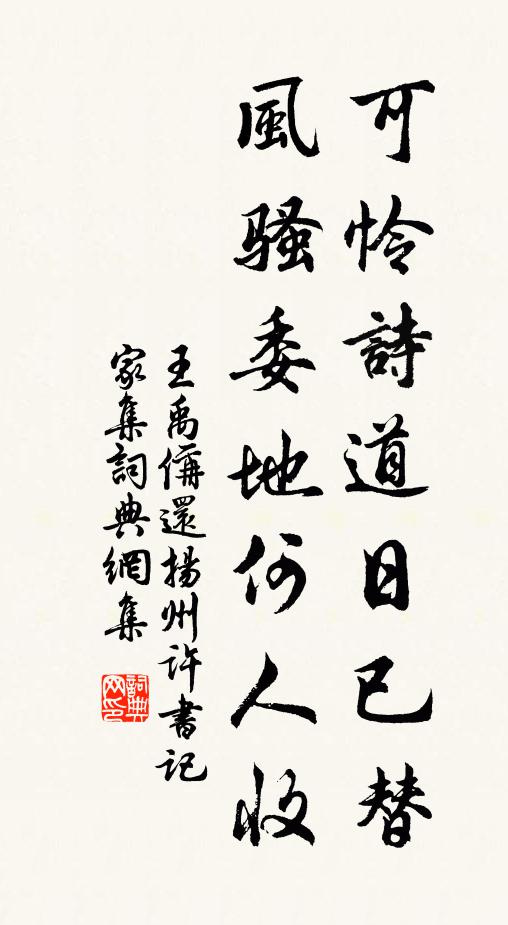 可怜詩道日已替
風騷委地何人收
王禹偁還揚州許書記
家集詞典網集
詞典
网印